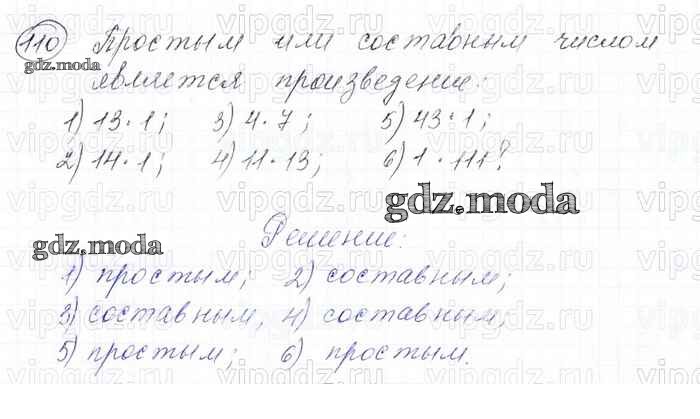 110 Простым или составным числом
является произведение:
1) 13·1; 3) 4·7; 5) 43·1;
2) 14·1; 4) 11·13; 6) 1·111?
gdz.moda
gdz.moda
gdz.moda
Решение:
1) простым; 2) составным;
3) составным; 4) составным;
5) простым; 6) простым.
vipgdz.ru vipgdz.ru vipgdz.ru vipgdz.ru